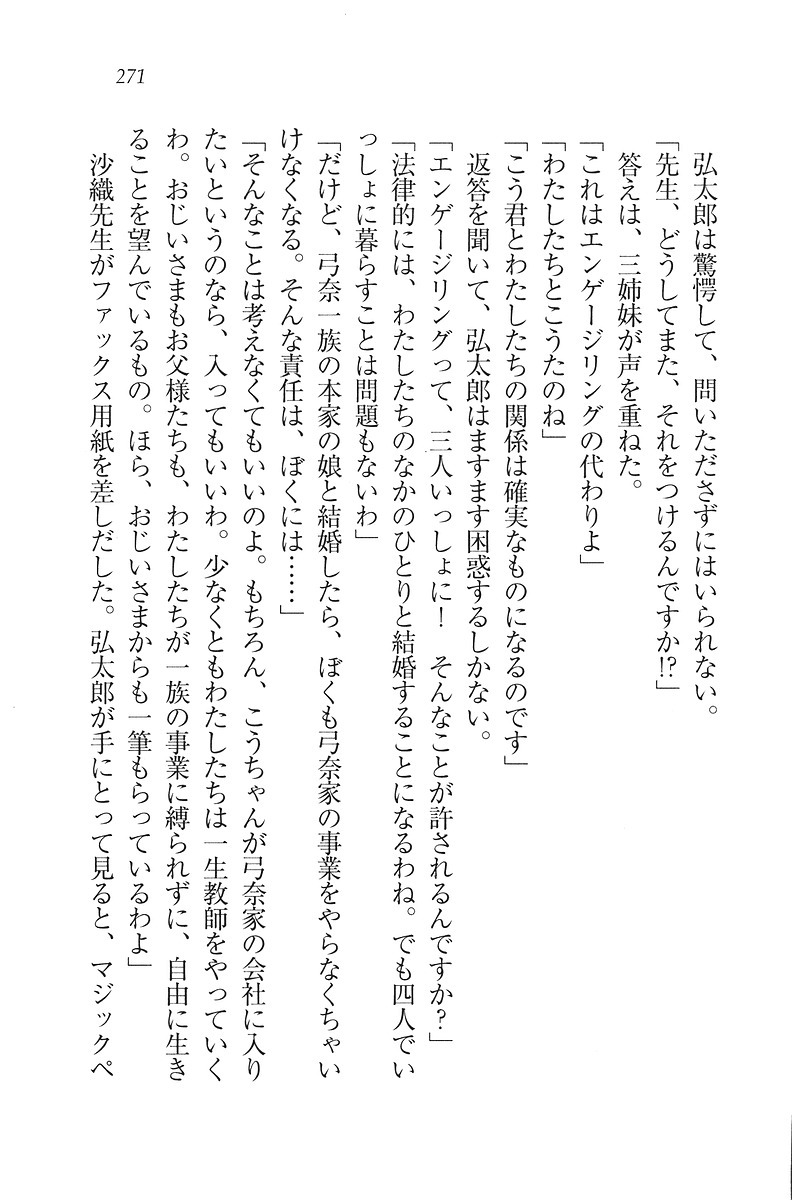 271
弘太郎は驚愕して、問いたださずにはいられない。
「先生、どうしてまた、それをつけるんですか!?」
答えは、三姉妹が声を重ねた。
「これはエンゲージリングの代わりよ」
「わたしたちとこうたのね」
「こう君とわたしたちの関係は確実なものになるのです」
返答を聞いて、弘太郎はますます困惑するしかない。
「エンゲージリングって、三人いっしょに！　そんなことが許されるんですか？」
「法律的には、わたしたちのなかのひとりと結婚することになるわね。でも四人でい
っしょに暮らすことは問題もないわ」
「だけど、弓奈一族の本家の娘と結婚したら、ぼくも弓奈家の事業をやらなくちゃい
けなくなる。そんな責任は、ぼくには……」
「そんなことは考えなくてもいいのよ。もちろん、こうちゃんが弓奈家の会社に入り
たいというのなら、入ってもいいわ。少なくともわたしたちは一生教師をやっていく
わ。おじいさまもお父様たちも、わたしたちが一族の事業に縛られずに、自由に生き
ることを望んでいるもの。ほら、おじいさまからも一筆もらっているわよ」
沙織先生がファックス用紙を差しだした。弘太郎が手にとって見ると、マジックペ